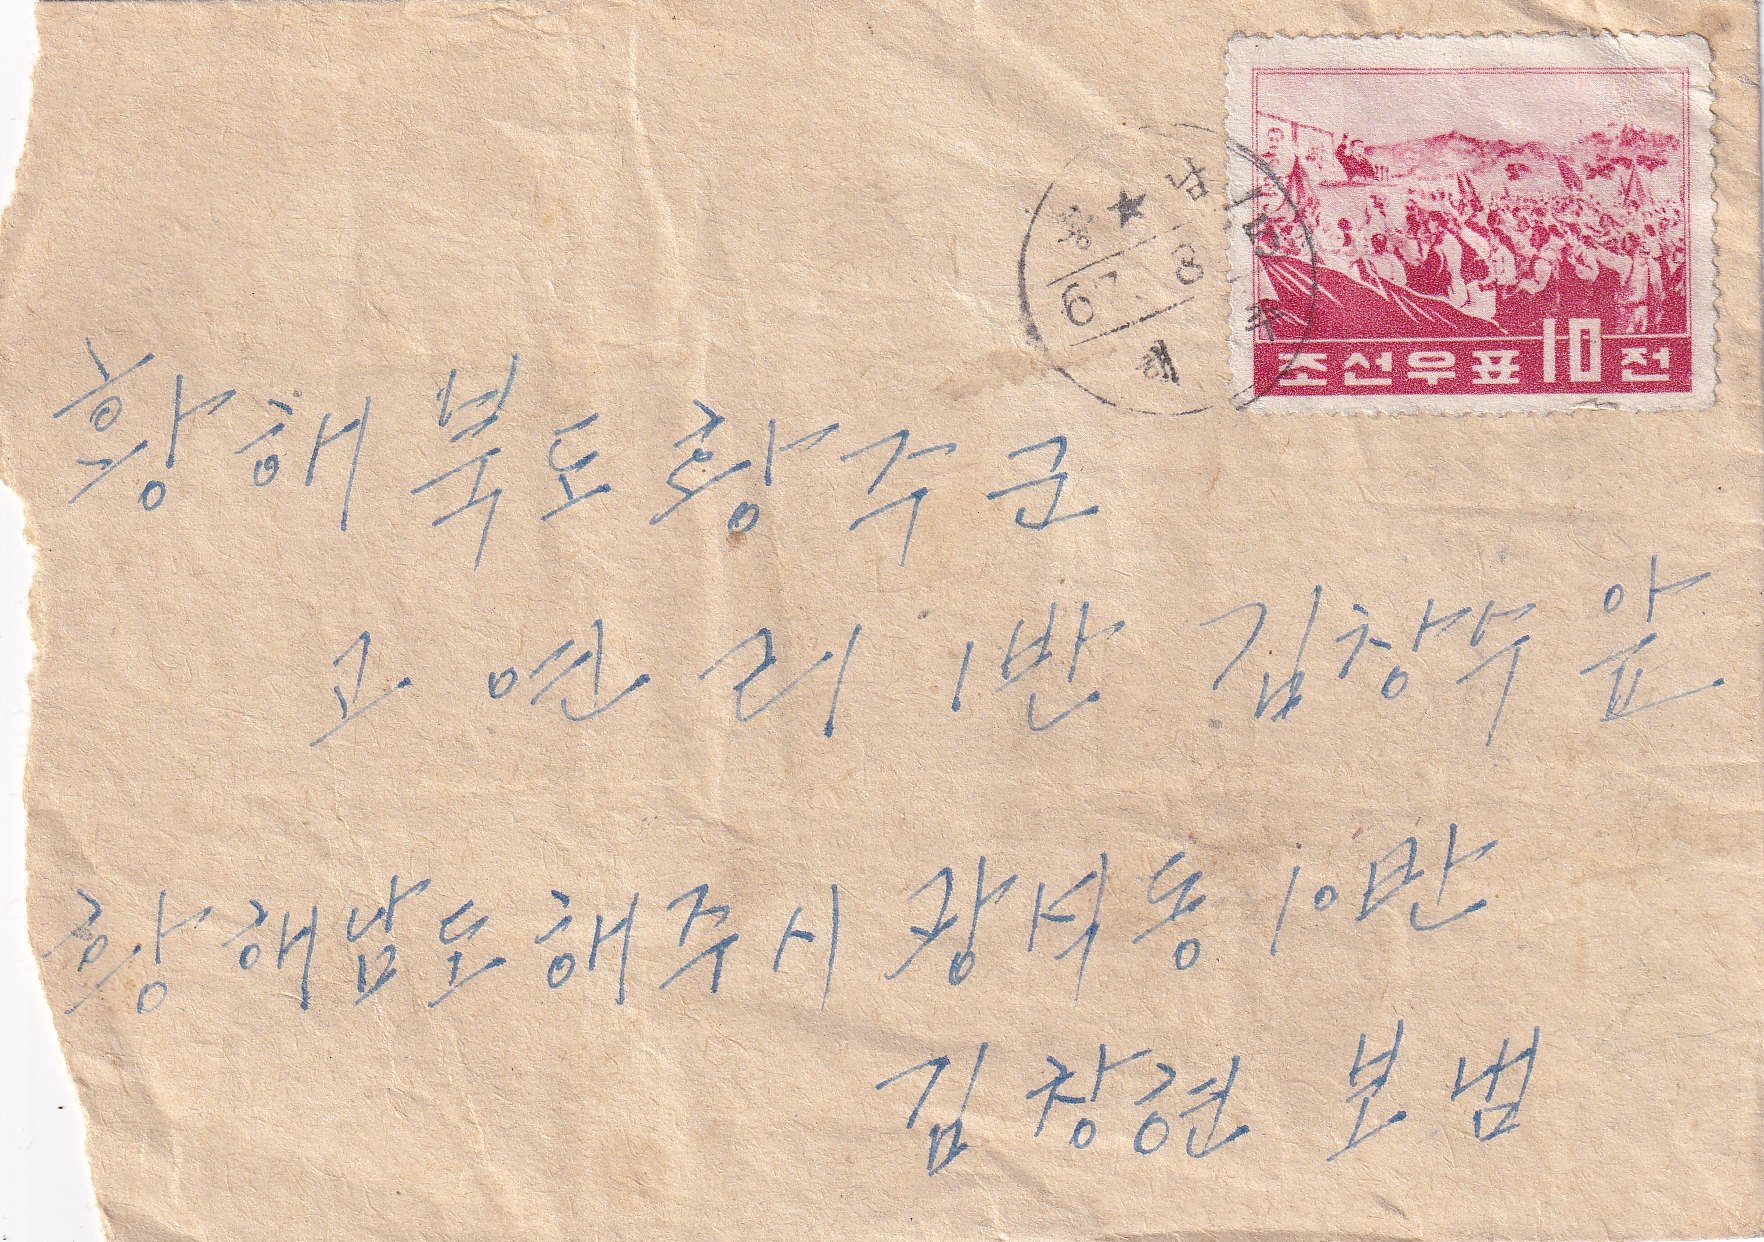 조선우표 10 전
황 ★ 남
67. 8. 15
해 주
황해북도 황주군
고연리 1반 김창수 앞
황해남도 해주시 광석동 10반
김창현 보냄